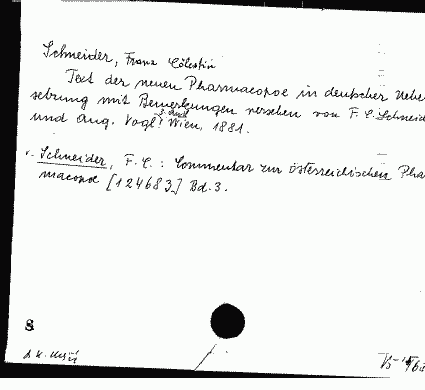 Schneider, Franz Cölestin
Text der neuen Pharmacopoe in deutscher Ueber
setzung mit Bemerkungen versehen von F. C. Schneid
3. Aufl.
und Aug. Vogl. Wien, 1881.
v. Schneider, F. C.: Commentar zur österreichischen Pha
macopoe [124683] Bd. 3.
8